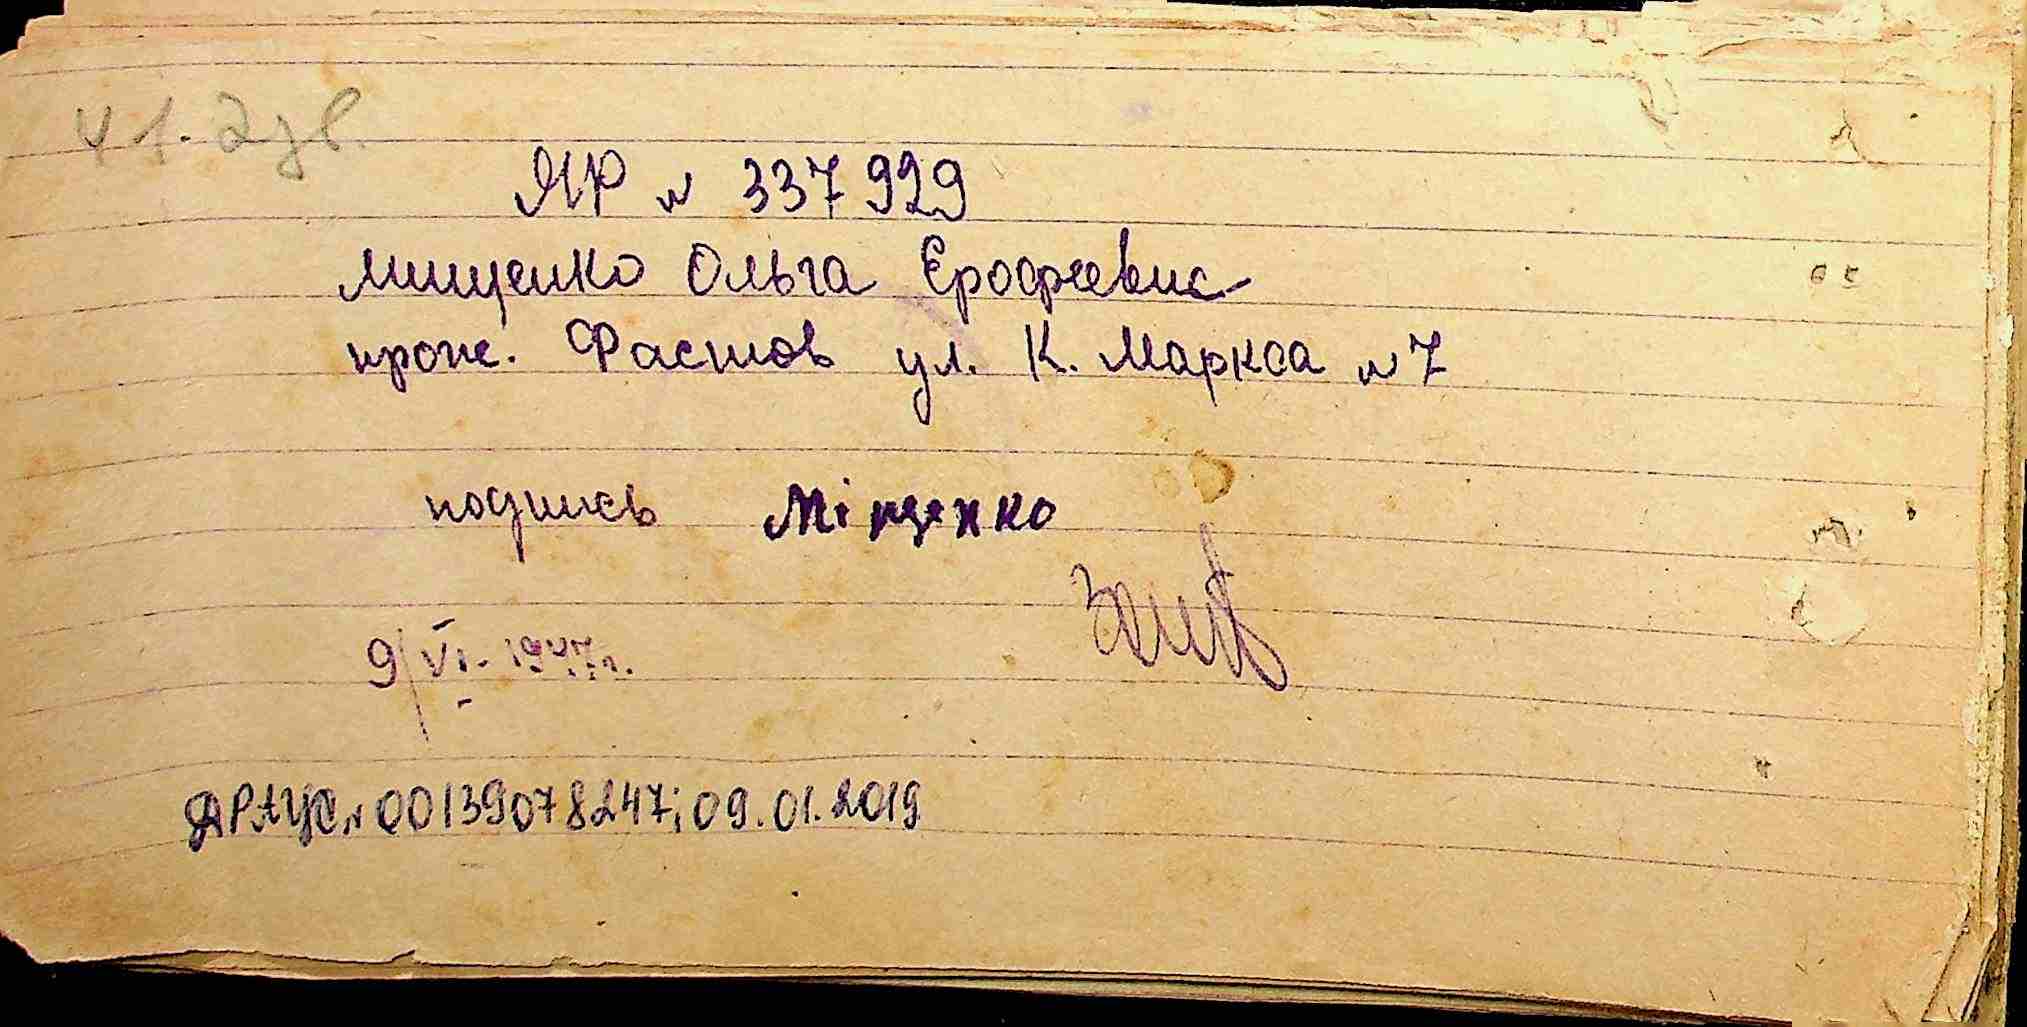 ЯР № 337929
Мищенко Ольга Ерофеевис
прож. Фастов ул. К. Маркса № 7
подпись Міщенко
9/VI-1947г.
ДРАЦС № 00139078247; 09.01.2019